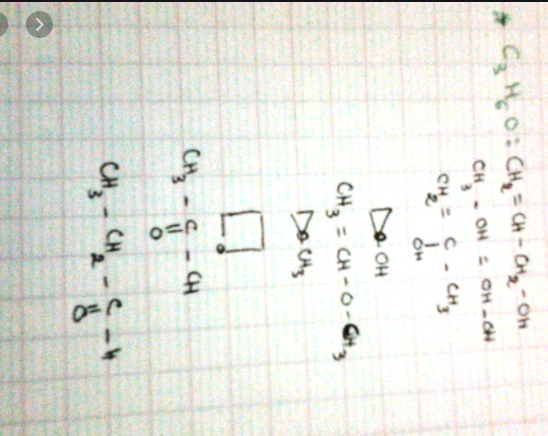 * C3H6O : CH2 = CH - CH2 - OH
CH3 - OH = OH - OH
CH2 = C - CH3
OH
OH
CH3 = CH - O - CH3
CH3
O
CH3 - C - CH
O
CH3 - CH2 - C - H
O